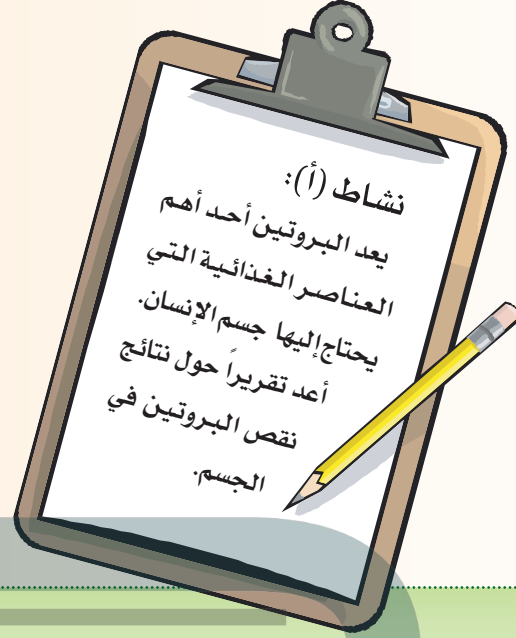 نشاط (أ):
يعد البروتين أحد أهم
العناصر الغذائية التي
يحتاج إليها جسم الإنسان.
أعد تقريراً حول نتائج
نقص البروتين في
الجسم.